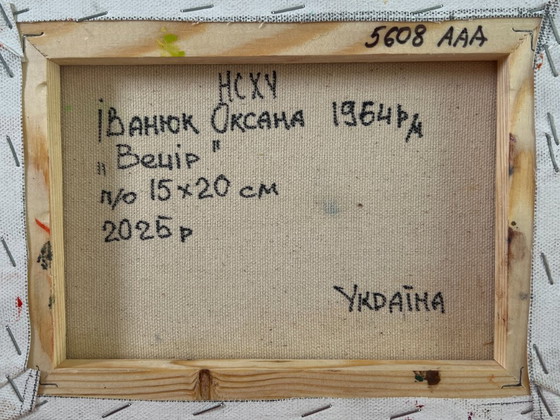 5608 AAA
НСХУ
Іванюк Оксана 1964р/м
„Вечір"
п/о 15×20 см
2025р
Україна